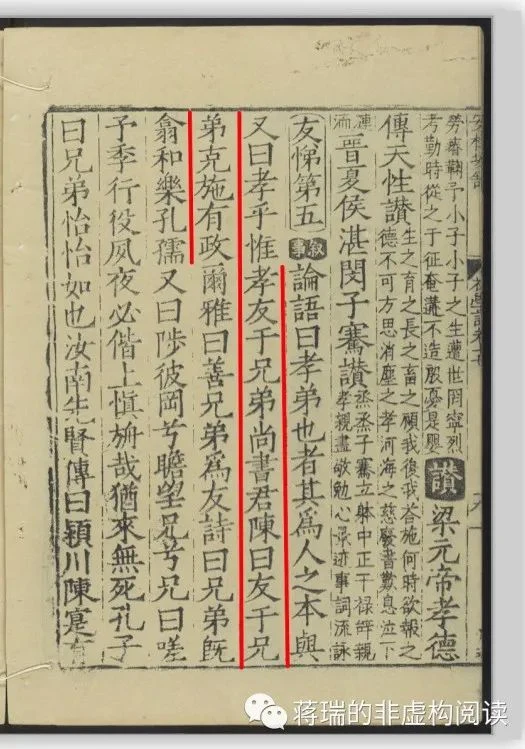 勞瘁鞠予小子小子之生遭世罔寧烈
考勤時從之于征奄遘不造殷憂是嬰
讚 梁元帝孝德
傳天性讚 生之育之長之畜之顧我復我荅施何時欲報之
德不可方思涓塵之孝河海之慈廢書歎息泣下
漣洏 晉夏侯湛閔子騫讚 烝烝子騫立躰中正干禄辤親
孝親盡敬勉心景迹事詞流詠
友悌第五 敘事 論語曰孝弟也者其爲人之本與
又曰孝乎惟孝友于兄弟尚書君陳曰友于兄
弟克施有政爾雅曰善兄弟爲友詩曰兄弟旣
翕和樂孔孺又曰陟彼岡兮瞻望兄兮兄曰嗟
予季行役夙夜必偕上愼旃哉猶來無死孔子
曰兄弟怡怡如也汝南先賢傳曰穎川陳寔
蒋瑞的非虚构阅读